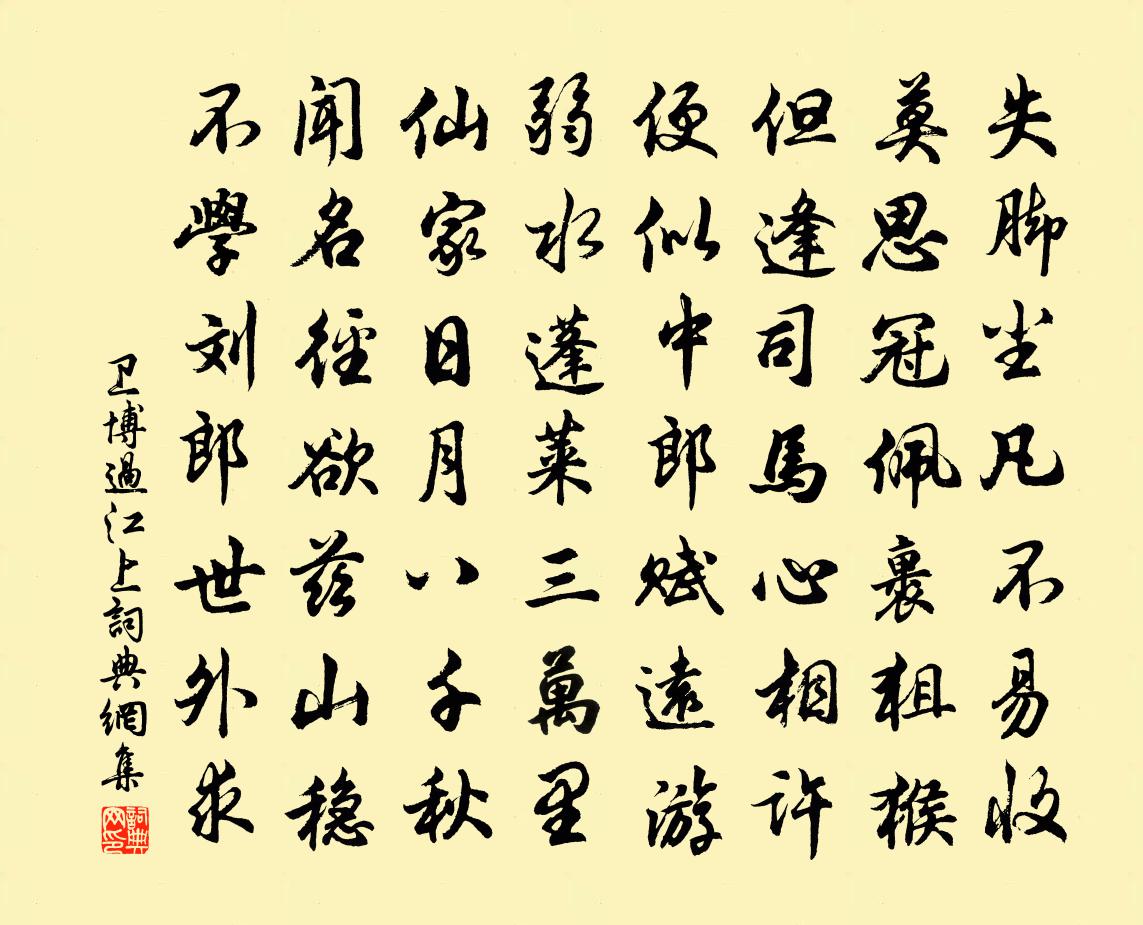 失脚尘凡不易收
莫思冠佩裹狙猴
但逢司馬心相许
便似中郎赋遠游
弱水蓬莱三萬里
仙家日月八千秋
闻名径欲茲山稳
不學刘郎世外求
卫博過江上詞典網集
詞典網印